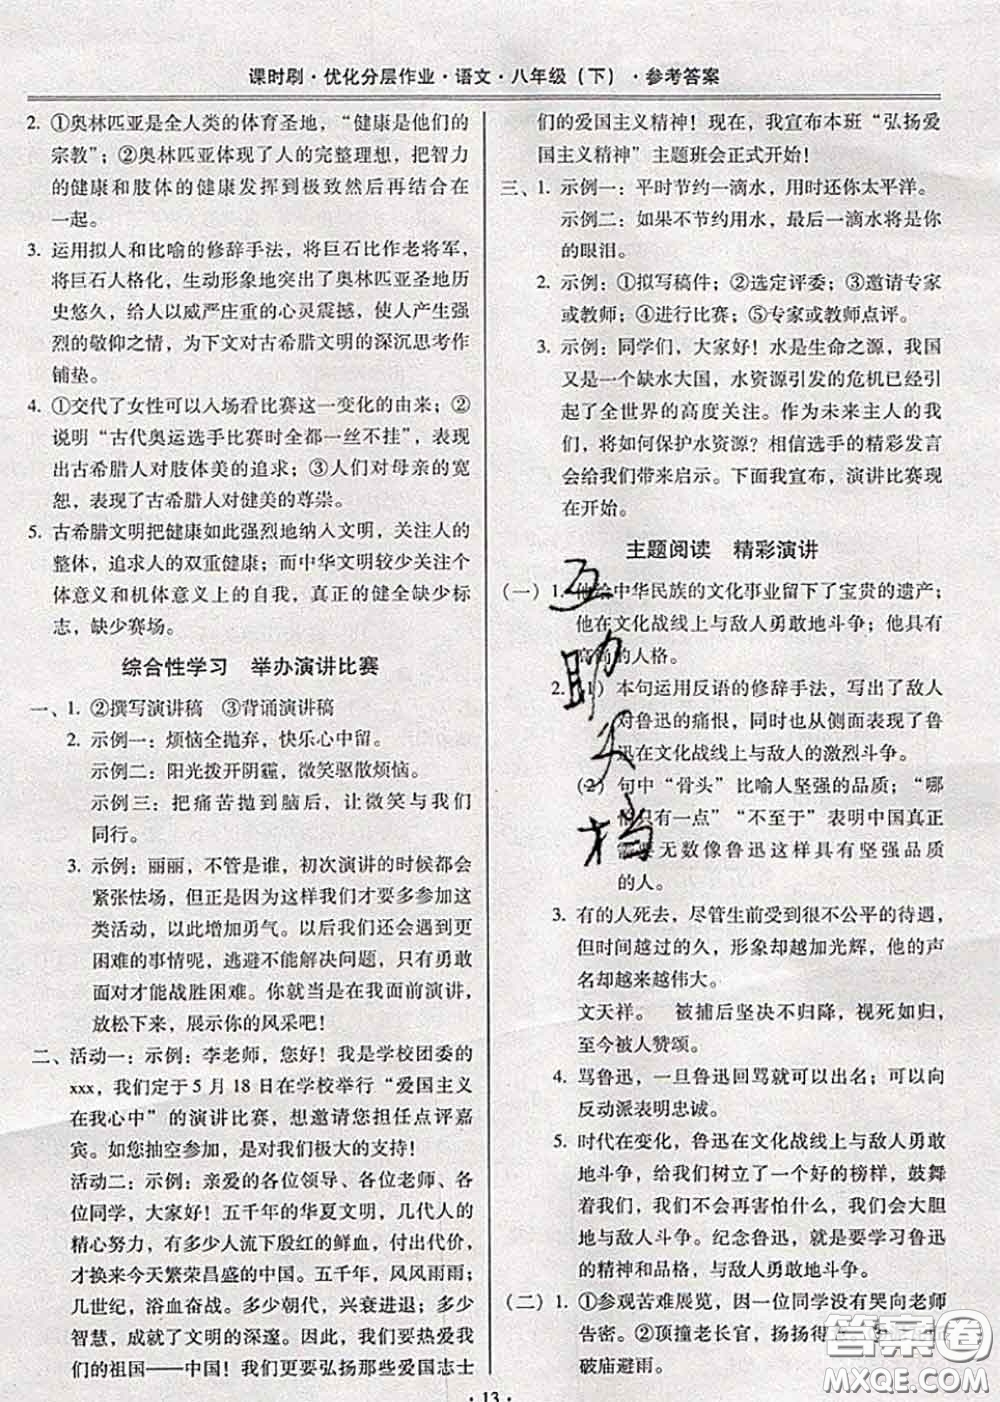 课时刷·优化分层作业·语文·八年级（下）·参考答案
2. ①奥林匹亚是全人类的体育圣地，“健康是他们的
宗教”；②奥林匹亚体现了人的完整理想，把智力
的健康和肢体的健康发挥到极致然后再结合在
一起。
3. 运用拟人和比喻的修辞手法，将巨石比作老将军，
将巨石人格化，生动形象地突出了奥林匹亚圣地历
史悠久，给人以威严庄重的心灵震撼，使人产生强
烈的敬仰之情，为下文对古希腊文明的深沉思考作
铺垫。
4. ①交代了女性可以入场看比赛这一变化的由来；②
说明“古代奥运选手比赛时全都一丝不挂”，表现
出古希腊人对肢体美的追求；③人们对母亲的宽
恕，表现了古希腊人对健美的尊崇。
5. 古希腊文明把健康如此强烈地纳入文明，关注人的
整体，追求人的双重健康；而中华文明较少关注个
体意义和机体意义上的自我，真正的健全缺少标
志，缺少赛场。
综合性学习 举办演讲比赛
一、1. ②撰写演讲稿 ③背诵演讲稿
2. 示例一：烦恼全抛弃，快乐心中留。
示例二：阳光拨开阴霾，微笑驱散烦恼。
示例三：把痛苦抛到脑后，让微笑与我们
同行。
3. 示例：丽丽，不管是谁，初次演讲的时候都会
紧张怯场，只是因为这样我们才要多参加这
类活动，以此增加勇气。以后我们还会遇到更
困难的事情呢，逃避不能解决问题，只有勇敢
面对才能战胜困难。你就当是在我面前演讲，
放松下来，展示你的风采吧！
二、活动一：示例：李老师，您好！我是学校团委的
xxx，我们定于5月18日在学校举行“爱国主义
在我心中”的演讲比赛，想邀请您担任点评嘉
宾。如您抽空参加，是对我们极大的支持！
活动二：示例：亲爱的各位领导、各位老师、各
位同学，大家好！五千年的华夏文明，几代人的
精心努力，有多少人流下殷红的鲜血，付出代价，
才换来今天繁荣昌盛的中国。五千年，风风雨雨；
几世纪，浴血奋战。多少朝代，兴衰进退；多少
智慧，成就了文明的深邃。今天，我们要热爱我
们的祖国——中国！我们更要弘扬那些爱国志士
们的爱国主义精神！现在，我宣布本班“弘扬爱
国主义精神”主题班会正式开始！
三、1. 示例一：平时节约一滴水，用时还你太平洋。
示例二：如果不节约用水，最后一滴水将是你
的眼泪。
2. 示例：①拟写稿件；②选定评委；③邀请专家
或教师；④进行比赛；⑤专家或教师点评。
3. 示例：同学们，大家好！水是生命之源，我国
又是一个缺水大国，水资源引发的危机已经引
起了全世界的高度关注。作为未来主人的我
们，将如何保护水资源？相信选手的精彩发言
会给我们带来启示。下面我宣布，演讲比赛现
在开始。
主题阅读 精彩演讲
（一）1. 他给中华民族的文化事业留下了宝贵的遗产；
他在文化战线上与敌人勇敢地斗争；他具有
高尚的人格。
2. （1）本句运用反语的修辞手法，写出了敌人
对鲁迅的痛恨，同时也从侧面表现了鲁
迅在文化战线上与敌人的激烈斗争。
（2）句中“骨头”比喻人坚强的品质；“哪
怕只有一点”“不至于”表明中国真正
需要无数像鲁迅这样具有坚强品质
的人。
3. 有的人死去，尽管生前受到很不公平的待遇，
但时间越过的久，形象却越加光辉，他的声
名却越来越伟大。
文天祥。 被捕后坚决不归降，视死如归，
至今被人赞颂。
4. 骂鲁迅，一旦鲁迅回骂就可以出名；可以向
反动派表明忠诚。
5. 时代在变化，鲁迅在文化战线上与敌人勇敢
地斗争，给我们树立了一个好的榜样，鼓舞
着我们，敌人再害怕什么，我们也会大胆
地与敌人斗争。纪念鲁迅，是要学习鲁迅
的精神和品格，与敌人勇敢地斗争。
（二）1. ①参观苦难展览，因一位同学没有哭向老师
告密。②顶撞老长官，扬扬得
破庙避雨。
互助文档
答案圈
MXQE.COM
·13·